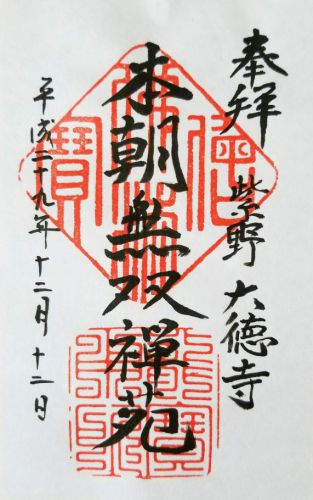 奉拝 紫野 大徳寺
本朝無双禅苑
平成二十九年十二月十二日